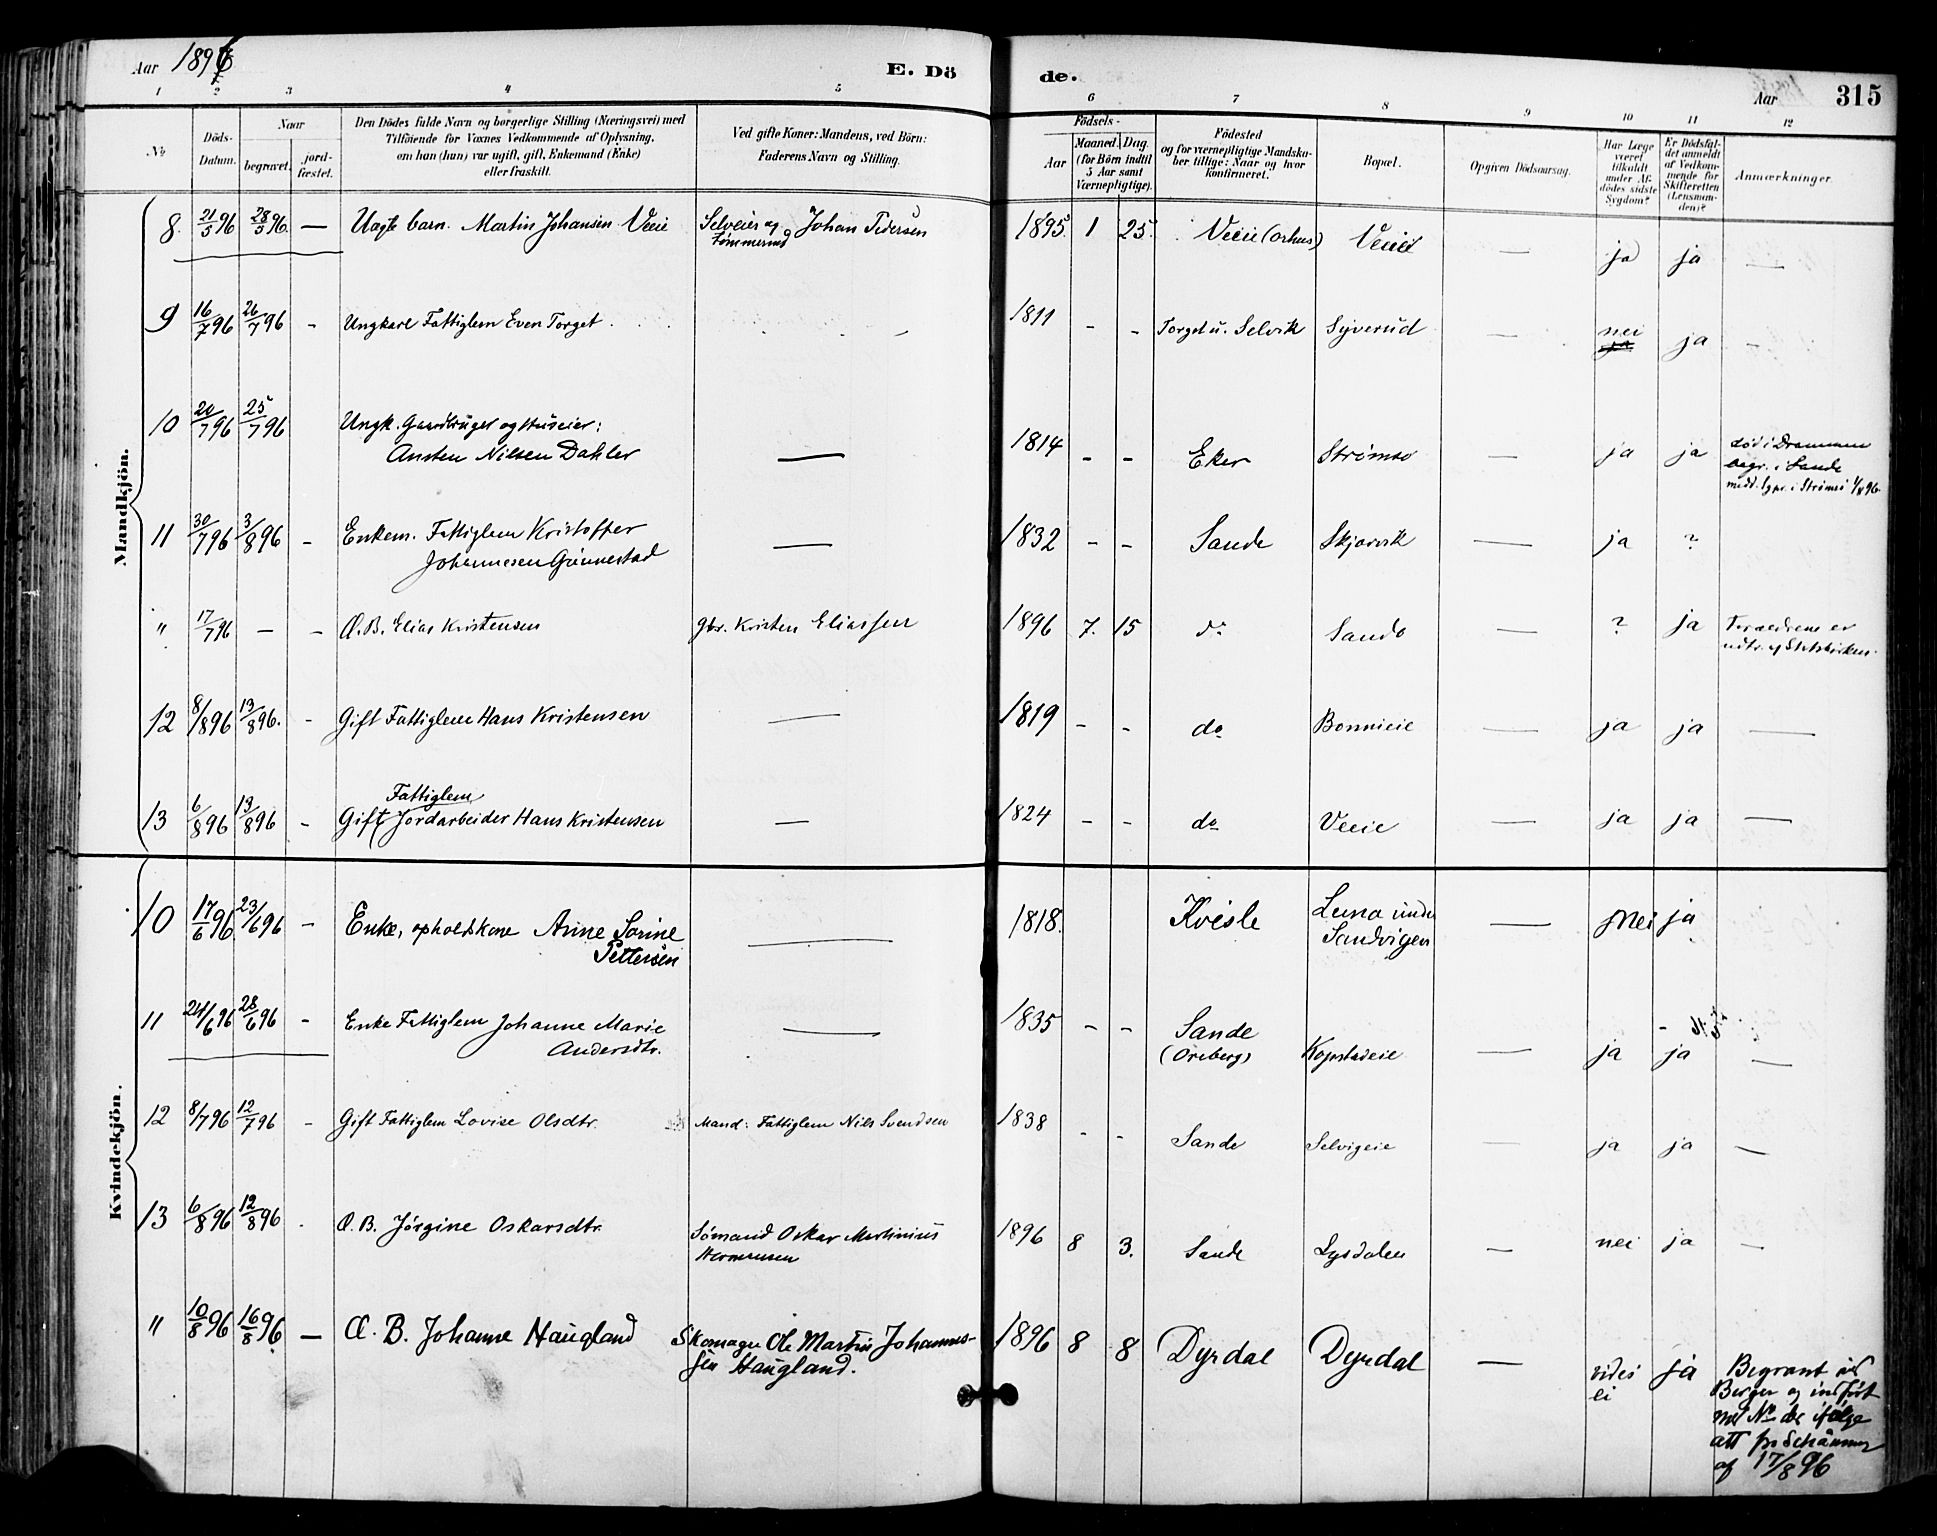 Aar 1896 E. Dö de. Aar 315
1 2 3 4 5 6 7 8 9 10 11 12
No
Döds-Datum.
Naar
begravet.
jord-fæstet.
Den Dödes fulde Navn og borgerlige Stilling (Næringsvei) med
Tilföiende for Voxnes Vedkommende af Oplysning,
om han (hun) var ugift, gift, Enkemand (Enke)
eller fraskilt.
Ved gifte Koner: Mandens, ved Börn:
Faderens Navn og Stilling.
Födsels-
Aar
Maaned. Dag.
(for Börn indtil
5 Aar samt
Værnepligtige).
Födested
og for værnepligtige Mandska-
ber tillige: Naar og hvor
konfirmeret.
Bopæl.
Opgiven Dödsaarsag.
Har Læge
været
tilkaldt
under Af-
dödes sidste
Sygdom?
Er Dödsfal-
det anmeldt
af Vedkom-
mende for
Skifteretten
(Lensman-
den)?
Anmærkninger.
Mandkjön.
8. 21/5 96 28/5 96. — Uægte barn. Martin Johansen Veeie Selveier og Johan Pedersen 1895. 1 25. Veeie (orhus) Veeie — ja ja —
Tømmermd
9 16/7 96 26/7 96 - Ungkarl Fattiglem Even Torget 1811 - - Torget u. Selvik Syverud nei ja -
ja
10 20/7 96 25/7 96 Ungk. Gaardbruger og Huseier:
Ansten Nilsen Dahler — 1814 - - Eker Strømsø — ja ja død i Drammen
begr. i Sande
11 30/7 96 3/8 96 - Enkem. Fattiglem Kristoffer
Johannesen Gunnestad — 1832 - - Sande Skjærvik — ja ?
" 17/7 96 — - D.B. Elias Kristensen gbr. Kristen Eliassen 1896 7. 15 do Sande — ? ja Foræeldrene er
udtr. af Statskirken.
12 8/8 96 13/8 96. - Gift Fattiglem Hans Kristensen — 1819 - - do Bonnieie — ja ja —
13 6/8 96 13/8 96 - Fattiglem
Gift Jordarbeider Hans Kristensen — 1824 - - do Veeie — ja ja —
Kvindekjön.
10 17/6 96 23/6 96 - Enke, opholdskone Anne Sorine
Pettersen — 1818. Kvisle Lena under
Sandvigen — nei ja
11 24/6 96 28/6 96 - Enke Fattiglem Johanne Marie
Andersdtr. — 1835 - - Sande
(Oreberg) Kopstadeie — ja ja —
12 8/7 96 12/7 96 - Gift Fattiglem Lovise Olsdtr. Mand: Fattiglem Nils Svendsen 1838 - - Sande Selvigeie — ja ja —
13 6/8 96 12/8 96 D.B. Jørgine Oskarsdtr. Sømand Oskar Martinius
Hermansen 1896 8 3. Sande Lysdalen — nei ja —
" 10/8 96 16/8 96 — D.B. Johanne Haugland Skomager Ole Martin Johannes-
sen Haugland. 1896 8 8 Dyrdal Dyrdal — vides
ei ja Begravet ved
Berger og indført
med No der ifølge
att fra
af 17/8 96